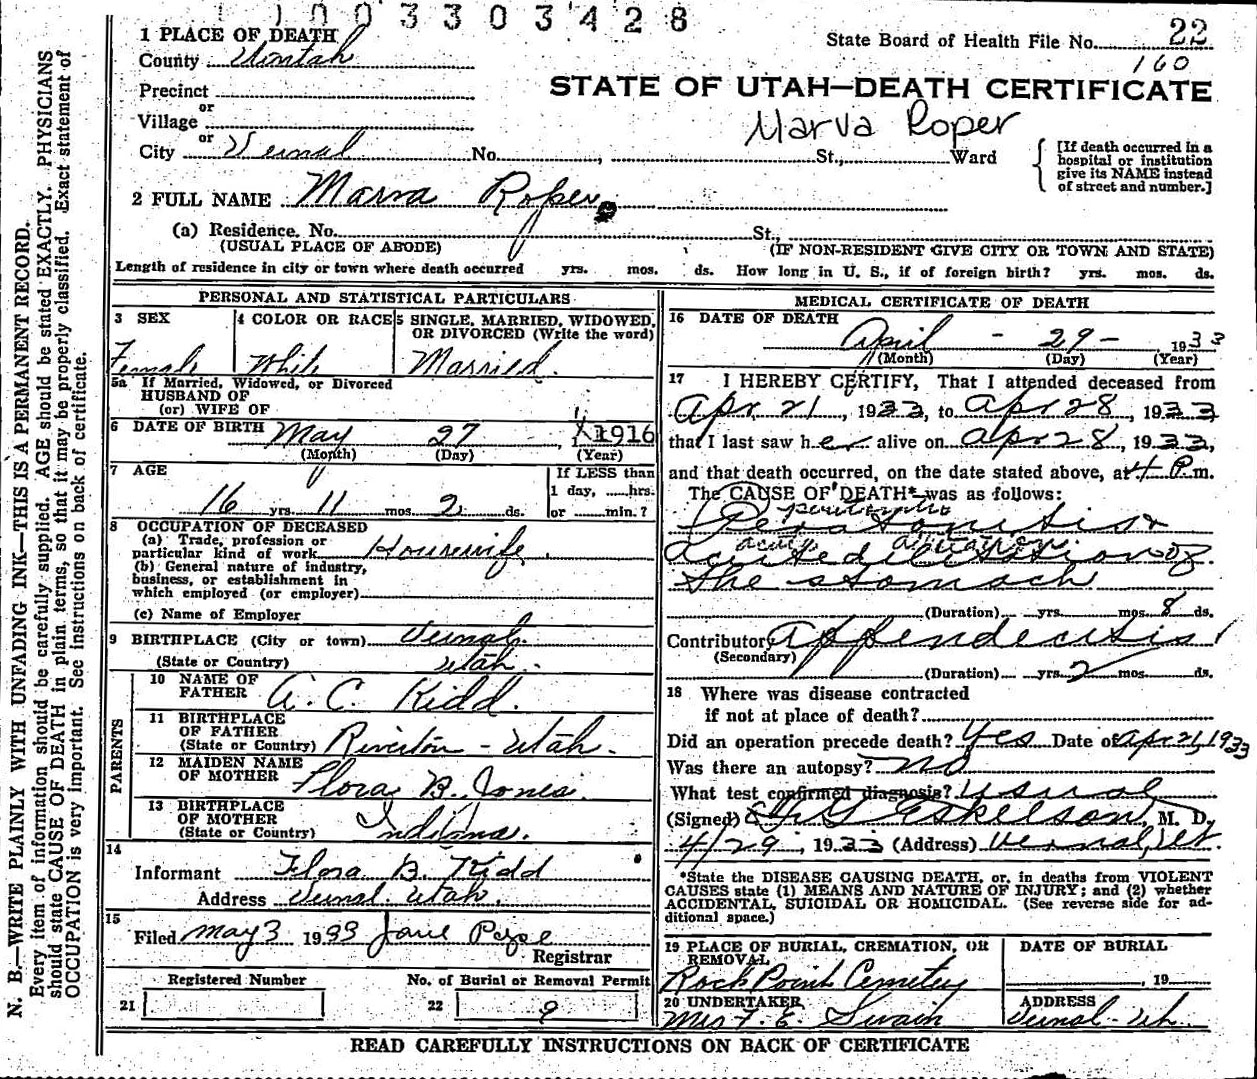 1003303428
1 PLACE OF DEATH
State Board of Health File No. 22
County Uintah
160
STATE OF UTAH—DEATH CERTIFICATE
Precinct
or
Village
Marva Roper
or
City Vernal No. , St., Ward
[If death occurred in a
hospital or institution
give its NAME instead
of street and number.]
2 FULL NAME Marva Roper
(a) Residence. No. St.,
(USUAL PLACE OF ABODE) (IF NON-RESIDENT GIVE CITY OR TOWN AND STATE)
Length of residence in city or town where death occurred yrs. mos. ds. How long in U. S., if of foreign birth? yrs. mos. ds.
PERSONAL AND STATISTICAL PARTICULARS
3 SEX
Female
4 COLOR OR RACE
White
5 SINGLE, MARRIED, WIDOWED,
OR DIVORCED (Write the word)
Married.
5a If Married, Widowed, or Divorced
HUSBAND OF
(or) WIFE OF
6 DATE OF BIRTH May 27 1916
(Month) (Day) (Year)
7 AGE
16 yrs. 11 mos. 2 ds.
If LESS than
1 day, ......hrs.
or ......min.?
8 OCCUPATION OF DECEASED
(a) Trade, profession or
particular kind of work Housewife.
(b) General nature of industry,
business, or establishment in
which employed (or employer)
(c) Name of Employer
9 BIRTHPLACE (City or town) Vernal.
(State or Country) Utah.
PARENTS
10 NAME OF
FATHER A. C. Kidd.
11 BIRTHPLACE
OF FATHER
(State or Country) Riverton - Utah.
12 MAIDEN NAME
OF MOTHER Flora B. Jones.
13 BIRTHPLACE
OF MOTHER
(State or Country) Indiana.
14
Informant Flora B. Kidd
Address Vernal. Utah.
15
Filed May 3 1933 Jane Pope
Registrar
Registered Number
21
No. of Burial or Removal Permit
22 9
MEDICAL CERTIFICATE OF DEATH
16 DATE OF DEATH
April - 29 - 1933
(Month) (Day) (Year)
17 I HEREBY CERTIFY, That I attended deceased from
Apr 21, 1933, to Apr 28, 1933
that I last saw her alive on Apr 28, 1933,
and that death occurred, on the date stated above, at 4 P.m.
The CAUSE OF DEATH* was as follows:
Peratonitis &
acute
acute dilitation of
the stomach
(Duration) yrs. mos. 8 ds.
Contributory Appendecitis
(Secondary)
(Duration) yrs. 2 mos. ds.
18 Where was disease contracted
if not at place of death?
Did an operation precede death? Yes Date of Apr 21, 1933
Was there an autopsy? no
What test confirmed diagnosis? usual
(Signed) Eskelson, M. D.
4/29, 1933 (Address) Vernal, Ut.
*State the DISEASE CAUSING DEATH, or, in deaths from VIOLENT
CAUSES state (1) MEANS AND NATURE OF INJURY; and (2) whether
ACCIDENTAL, SUICIDAL OR HOMICIDAL. (See reverse side for ad-
ditional space.)
19 PLACE OF BURIAL, CREMATION, OR
REMOVAL
Rock Point Cemetey
DATE OF BURIAL
, 19
20 UNDERTAKER
Mrs F. E. Swain
ADDRESS
Vernal - Ut.
READ CAREFULLY INSTRUCTIONS ON BACK OF CERTIFICATE
N. B.—WRITE PLAINLY WITH UNFADING INK—THIS IS A PERMANENT RECORD.
Every item of information should be carefully supplied. AGE should be stated EXACTLY. PHYSICIANS
should state CAUSE OF DEATH in plain terms, so that it may be properly classified. Exact statement of
OCCUPATION is very important. See instructions on back of certificate.